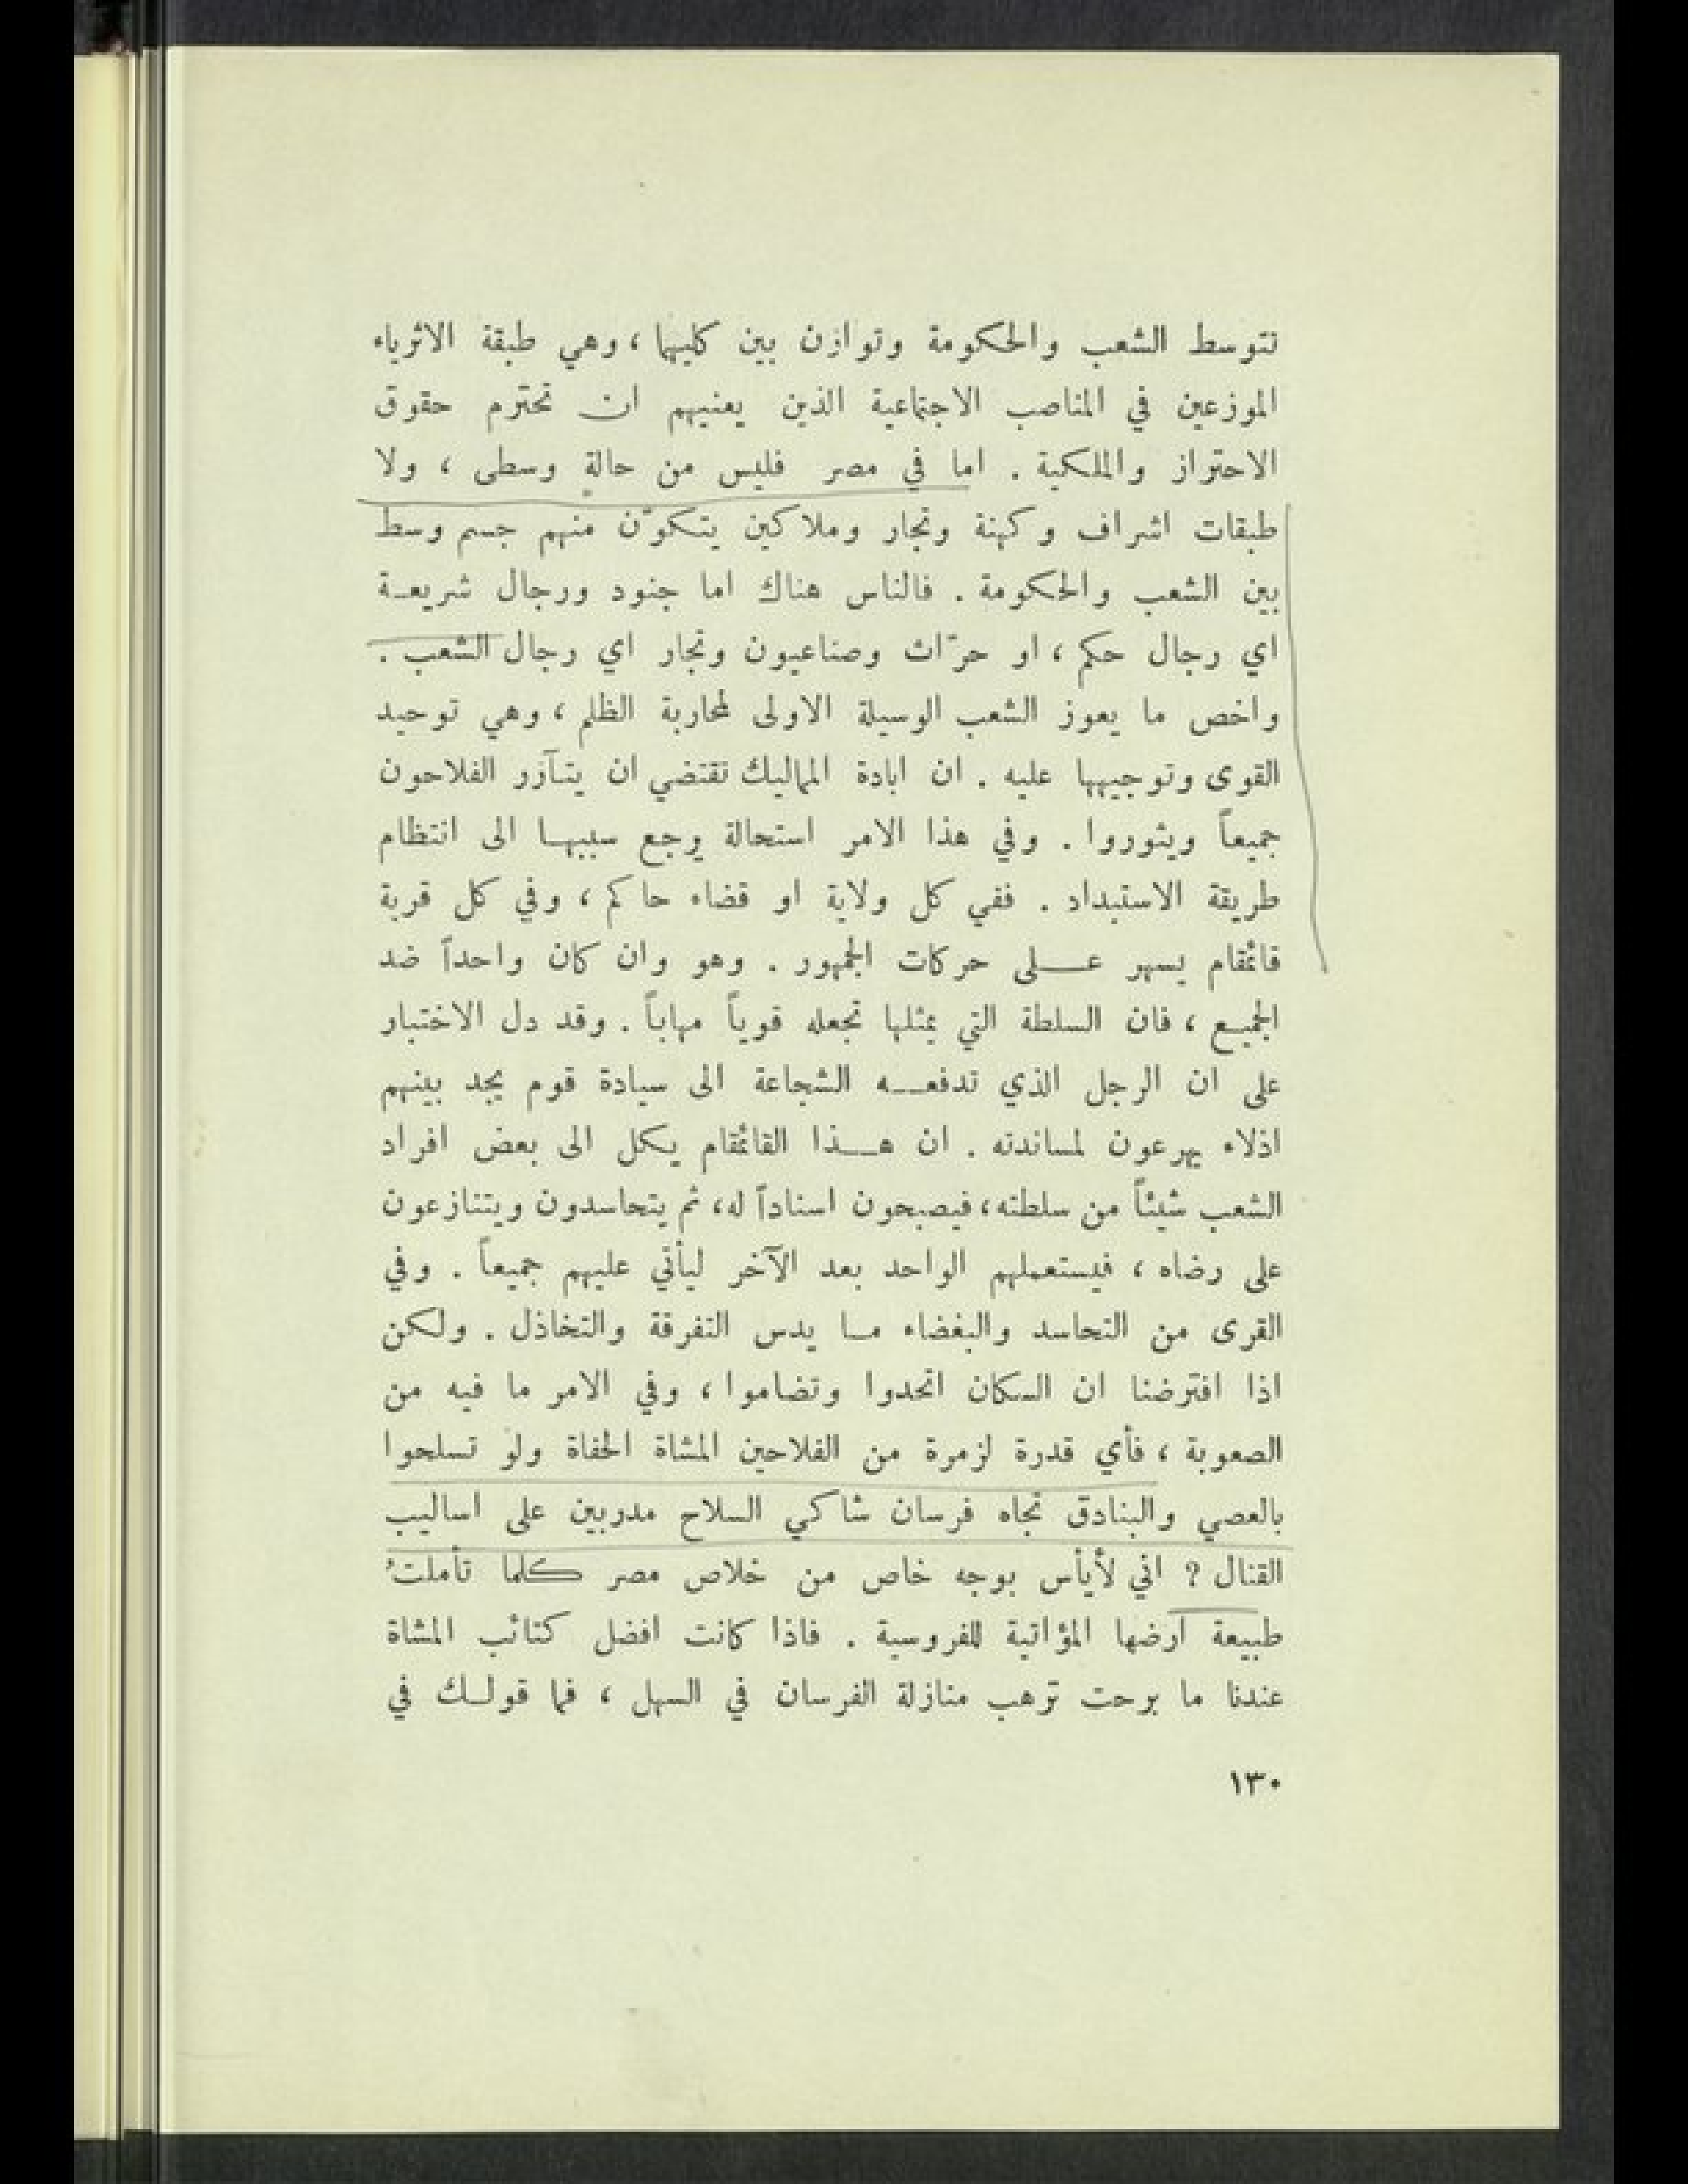 تتوسط الشعب والحكومة وتوازن بين كليهما ، وهي طبقة الاثرياء
الموزعين في المناصب الاجتماعية الذين يعنيهم ان تحترم حقوق
الاحتراز والملكية . اما في مصر فليس من حالة وسطى ، ولا
طبقات اشراف وكهنة وتجار وملاكين يتكوّن منهم جسم وسط
بين الشعب والحكومة . فالناس هناك اما جنود ورجال شريعة
اي رجال حكم ، او حرّاث وصناعيون وتجار اي رجال الشعب .
واخص ما يعوز الشعب الوسيلة الاولى لمحاربة الظلم ، وهي توحيد
القوى وتوجيهها عليه . ان ابادة المماليك تقتضي ان يتآزر الفلاحون
جميعاً ويثوروا . وفي هذا الامر استحالة يرجع سببها الى انتظام
طريقة الاستبداد . ففي كل ولاية او قضاء حاكم ، وفي كل قرية
قائمقام يسهر على حركات الجمهور . وهو وان كان واحداً ضد
الجميع ، فان السلطة التي يمثلها تجعله قوياً مهاباً . وقد دل الاختبار
على ان الرجل الذي تدفعه الشجاعة الى سيادة قوم يجد بينهم
اذلاء يهرعون لمساندته . ان هذا القائمقام يكل الى بعض افراد
الشعب شيئاً من سلطته ، فيصبحون اسناداً له ، ثم يتحاسدون ويتنازعون
على رضاه ، فيستعملهم الواحد بعد الآخر ليأتي عليهم جميعاً . وفي
القرى من التحاسد والبغضاء ما يدس التفرقة والتخاذل . ولكن
اذا افترضنا ان السكان اتحدوا وتضاموا ، وفي الامر ما فيه من
الصعوبة ، فأي قدرة لزمرة من الفلاحين المشاة الحفاة ولو تسلحوا
بالعصي والبنادق تجاه فرسان شاكي السلاح مدربين على اساليب
القتال ? اني لأيأس بوجه خاص من خلاص مصر كلما تأملتُ
طبيعة ارضها المؤاتية للفروسية . فاذا كانت افضل كتائب المشاة
عندنا ما برحت ترهب منازلة الفرسان في السهل ، فما قولك في
١٣٠